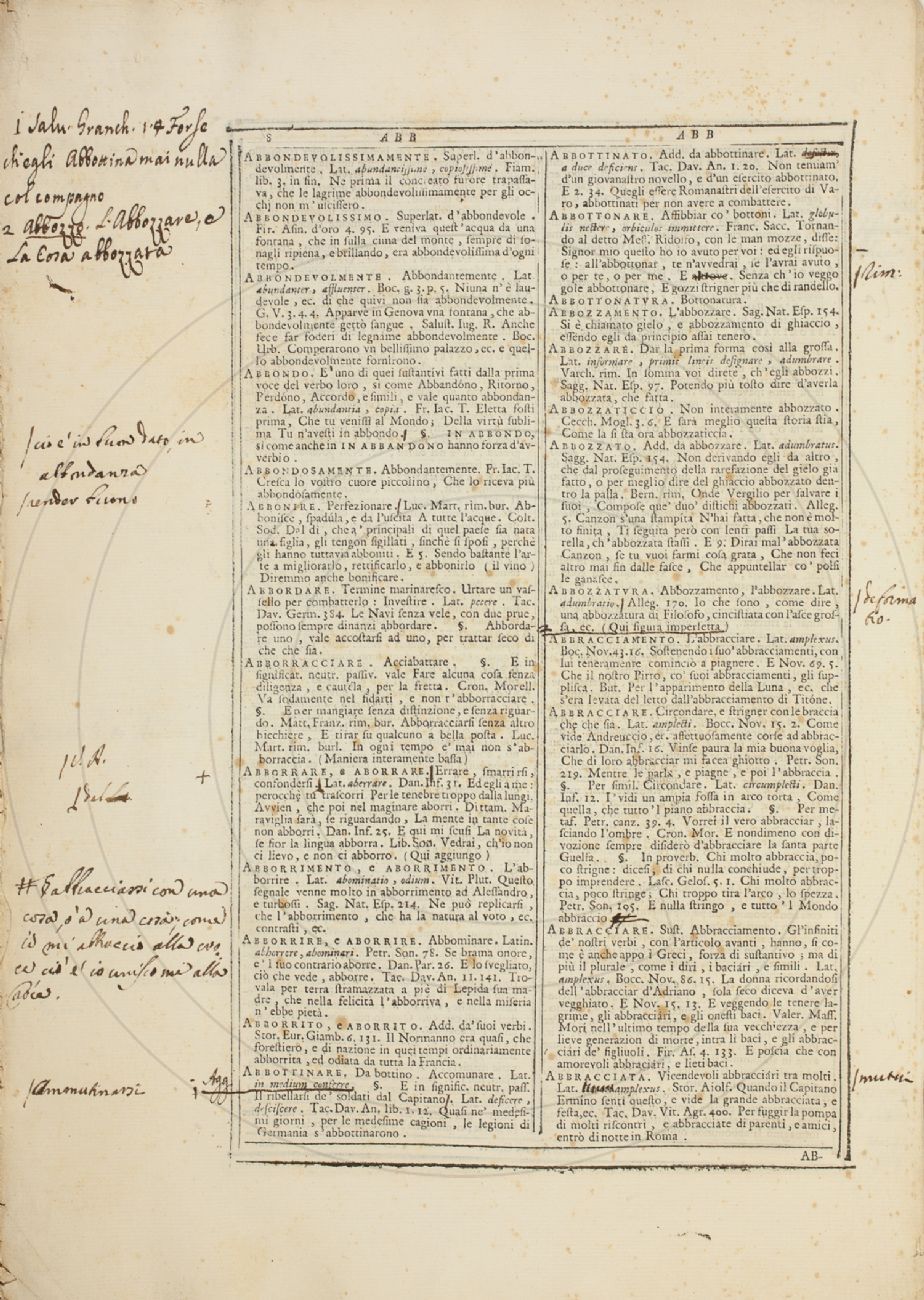 1 Salu. Granch. 1.4 Forse
ch'egli Abbottina mai nulla
col compagno
2 Abbozzo. L'Abbozzare, e
La Cosa abbozzata
in
abbondanza
render buono
Agg.
ammutinarsi
8 ABB
ABBONDEVOLISSIMAMENTE. Superl. d'abbon-
devolmente. Lat. abundantissime, copiosissime. Fiam.
lib. 3. in fin. Ne prima il conceato furore trapassa-
va, che le lagrime abbondevolissimamente per gli oc-
chj non m'uscissero.
ABBONDEVOLISSIMO. Superlat. d'abbondevole.
Fir. Asin. d'oro 4. 95. E veniva quest'acqua da una
fontana, che in sulla cima del monte, sempre di so-
nagli ripiena, e brillando, era abbondevolissima d'ogni
tempo.
ABBONDEVOLMENTE. Abbondantemente. Lat.
abundanter, affluenter. Boc. g. 3. p. 5. Niuna n'è lau-
devole, ec. di che quivi non sia abbondevolmente.
G. V. 3. 4. 4. Apparve in Genova una fontana, che ab-
bondevolmente gettò sangue. Salust. Iug. R. Anche
fece far foderi di legname abbondevolmente. Boc.
Lib. Comperarono un bellissimo palazzo, ec. e quel-
lo abbondevolmente fornirono.
ABBONDO. E'uno di quei sustantivi fatti dalla prima
voce del verbo loro, si come Abbandóno, Ritorno,
Perdóno, Accordo, e simili, e vale quanto abbondan-
za. Lat. abundantia, copia. Fr. Iac. T. Eletta fosti
prima, Che tu venissi al Mondo; Della virtù subli-
ma Tu n'avesti in abbondo. §. IN ABBONDO,
si come anche in IN ABBANDONO hanno forza d'av-
verbio.
ABBONDOSAMENTE. Abbondantemente. Fr. Iac. T.
Cresca lo vostro cuore piccolino, Che lo riceva più
abbondosamente.
ABBONIRE. Perfezionare. Luc. Mart. rim. bur. Ab-
bonisce, spadúla, e dà l'uscita A tutte l'acque. Colt.
Sod. Dal dì, che a' principali di quel paese sia nata
una figlia, gli tengon sigillati, sinchè si sposi, perchè
gli hanno tuttavia abboniti. E 5. Sendo bastante l'ar-
te a migliorarlo, rettificarlo, e abbonirlo (il vino)
Diremmo anche bonificare.
ABBORDARE. Termine marinaresco. Urtare un vas-
sello per combatterlo: Investire. Lat. petere. Tac.
Dav. Germ. 384. Le Navi senza vele, con due prue,
possono sempre dinanzi abbordare. §. Abborda-
re uno, vale accostarsi ad uno, per trattar seco di
che che sia.
ABBORRACCIARE. Acciabattare. §. E in
significat. neutr. passiv. vale Fare alcuna cosa senza
diligenza, e cautéla, per la fretta. Cron. Morell.
Va sodamente nel fidarti, e non t'abborracciare.
§. E per mangiare senza distinzione, e senza riguar-
do. Matt. Franz. rim. bur. Abborracciarsi senza altro
bicchiere, E tirar su qualcuno a bella posta. Luc.
Mart. rim. burl. In ogni tempo e' mai non s'ab-
borraccia. (Maniera interamente bassa)
ABBORRARE, e ABORRARE. Errare, smarrirsi,
confondersi. Lat. aberrare. Dan. Inf. 31. Ed egli a me:
perocchè tu trascorri Per le tenebre troppo dalla lungi,
Avvien, che poi nel maginare aborri. Dittam. Ma-
raviglia sarà, se riguardando, La mente in tante cose
non abborri. Dan. Inf. 25. E qui mi scusi La novità,
se fior la lingua abborra. Lib. Son. Vedrai, ch'io non
ci lievo, e non ci abborro. (Qui aggiungo)
ABBORRIMENTO, e ABORRIMENTO. L'ab-
borrire. Lat. abominatio, odium. Vit. Plut. Questo
segnale venne molto in abborrimento ad Alessandro,
e turbossi. Sag. Nat. Esp. 214. Ne può replicarsi,
che l'abborrimento, che ha la natura al voto, ec.
contrasti, ec.
ABBORRIRE, e ABORRIRE. Abbominare. Latin.
abhorrere, abominari. Petr. Son. 78. Se brama onore,
e'l suo contrario aborre. Dan. Par. 26. E lo svegliato,
ciò che vede, abborre. Tac. Dav. An. 11. 141. Tro-
vala per terra stramazzata a piè di Lepida sua ma-
dre, che nella felicità l'abborriva, e nella miseria
n'ebbe pietà.
ABBORRITO, e ABORRITO. Add. da'suoi verbi.
Stor. Eur. Giamb. 6. 131. Il Normanno era quasi, che
forestiero, e di nazione in quei tempi ordinariamente
abborrita, ed odiata da tutta la Francia.
ABBOTTINARE. Da bottino. Accomunare. Lat.
in medium conferre. §. E in signific. neutr. pass.
Il ribellarsi de' soldati dal Capitano. Lat. deficere,
desciscere. Tac. Dav. An. lib. 1. 12. Quasi ne' medesi-
mi giorni, per le medesime cagioni, le legioni di
Germania s'abbottinarono.
ABB
ABBOTTINATO. Add. da abbottinare. Lat.
a duce deficiens. Tac. Dav. An. 1. 20. Non temiam'
d'un giovanastro novello, e d'un esercito abbottinato.
E 2. 34. Quegli essere Romanastri dell'esercito di Va-
ro, abbottinati per non avere a combattere.
ABBOTTONARE. Affibbiar co' bottoni. Lat. globu-
lis nectere, orbiculos immittere. Franc. Sacc. Tornan-
do al detto Mess. Ridolfo, con le man mozze, disse:
Signor mio questo ho io avuto per voi: ed egli rispuo-
se: all'abbottonar, te n'avvedrai, se l'avrai avuto,
o per te, o per me. E altrove. Senza ch'io veggo
gole abbottonare, E gozzi strigner più che di randello.
ABBOTTONATVRA. Bottonatura.
ABBOZZAMENTO. L'abbozzare. Sag. Nat. Esp. 154.
Si è chiamato gielo, e abbozzamento di ghiaccio,
essendo egli da principio assai tenero.
ABBOZZARE. Dar la prima forma così alla grossa.
Lat. informare, primis lineis designare, adumbrare.
Varch. rim. In somma voi direte, ch'egli abbozzi.
Sagg. Nat. Esp. 97. Potendo più tosto dire d'averla
abbozzata, che fatta.
ABBOZZATICCIO. Non interamente abbozzato.
Cecch. Mogl. 3. 6. E sarà meglio questa storia stia,
Come la si sta ora abbozzaticcia.
ABBOZZATO. Add. da abbozzare. Lat. adumbratus.
Sagg. Nat. Esp. 154. Non derivando egli da altro,
che dal proseguimento della rarefazione del gielo gia
fatto, o per meglio dire del ghiaccio abbozzato den-
tro la palla. Bern. rim, Onde Vergilio per salvare i
suoi, Compose que' duo' distichi abbozzati. Alleg.
5. Canzon s'una stampita N'hai fatta, che non è mol-
to finita, Ti seguita però con lenti passi La tua so-
rella, ch'abbozzata stassi. E 9. Dirai mal'abbozzata
Canzon, se tu vuoi farmi cosa grata, Che non feci
altro mai fin dalle fasce, Che appuntellar co' polsi
le ganasce.
ABBOZZATVRA. Abbozzamento, l'abbozzare. Lat.
adumbratio. Alleg. 170. Io che sono, come dire,
una abbozzatura di Filosofo, cincistiata con l'asce gros-
sa, ec. (Qui figura imperfetta)
ABBRACCIAMENTO. L'abbracciare. Lat. amplexus.
Boc. Nov. 43. 16. Sostenendo i suo' abbracciamenti, con
lui teneramente cominciò a piagnere. E Nov. 69. 5.
Che il nostro Pirro, co' suoi abbracciamenti, gli sup-
plisca. But. Per l'apparimento della Luna, ec. che
s'era levata del letto dall'abbracciamento di Titóne.
ABBRACCIARE. Circondare, e strigner con le braccia
che che sia. Lat. amplecti. Bocc. Nov. 15. 2. Come
vide Andreuccio, ec. affettuosamente corse ad abbrac-
ciarlo. Dan. Inf. 16. Vinse paura la mia buona voglia,
Che di loro abbracciar mi facea ghiotto. Petr. Son.
219. Mentre le parla, e piagne, e poi l'abbraccia.
§. Per simil. Circondare. Lat. circumplecti. Dan.
Inf. 12. I' vidi un ampia fossa in arco torta, Come
quella, che tutto 'l piano abbraccia. §. Per me-
taf. Petr. canz. 39. 4. Vorrei il vero abbracciar, la-
sciando l'ombre. Cron. Mor. E nondimeno con di-
vozione sempre disiderò d'abbracciare la santa parte
Guelfa. §. In proverb. Chi molto abbraccia, po-
co strigne: dicesi, di chi nulla conchiude, per trop-
po imprendere. Lasc. Gelos. 5. 1. Chi molto abbrac-
cia, poco stringe: Chi troppo tira l'arco, lo spezza.
Petr. Son. 195. E nulla stringo, e tutto 'l Mondo
abbraccio
ABBRACCIARE. Sust. Abbracciamento. Gl'infiniti
de' nostri verbi, con l'articolo avanti, hanno, sì co-
me è anche appo i Greci, forza di sustantivo; ma di
più il plurale, come i diri, i baciári, e simili. Lat.
amplexus. Bocc. Nov. 86. 15. La donna ricordandosi
dell'abbracciar d'Adriano, sola seco diceva d'aver
vegghiato. E Nov. 15. 13. E veggendo le tenere la-
grime, gli abbracciári, e gli onesti baci. Valer. Mass.
Mori nell'ultimo tempo della sua vecchiezza, e per
lieve generazion di morte, intra li baci, e gli abbrac-
ciári de' figliuoli. Fir. As. 4. 133. E poscia che con
amorevoli abbracciári, e lieti baci.
ABBRACCIATA. Vicendevoli abbracciári tra molti.
Lat. amplexus. Stor. Aiolf. Quando il Capitano
Ermino sentì questo, e vide la grande abbracciata, e
festa, ec. Tac. Dav. Vit. Agr. 400. Per fuggir la pompa
di molti riscontri, e abbracciate di parenti, e amici,
entrò di notte in Roma.
AB-
Rim.
deforma
tio.
mutui